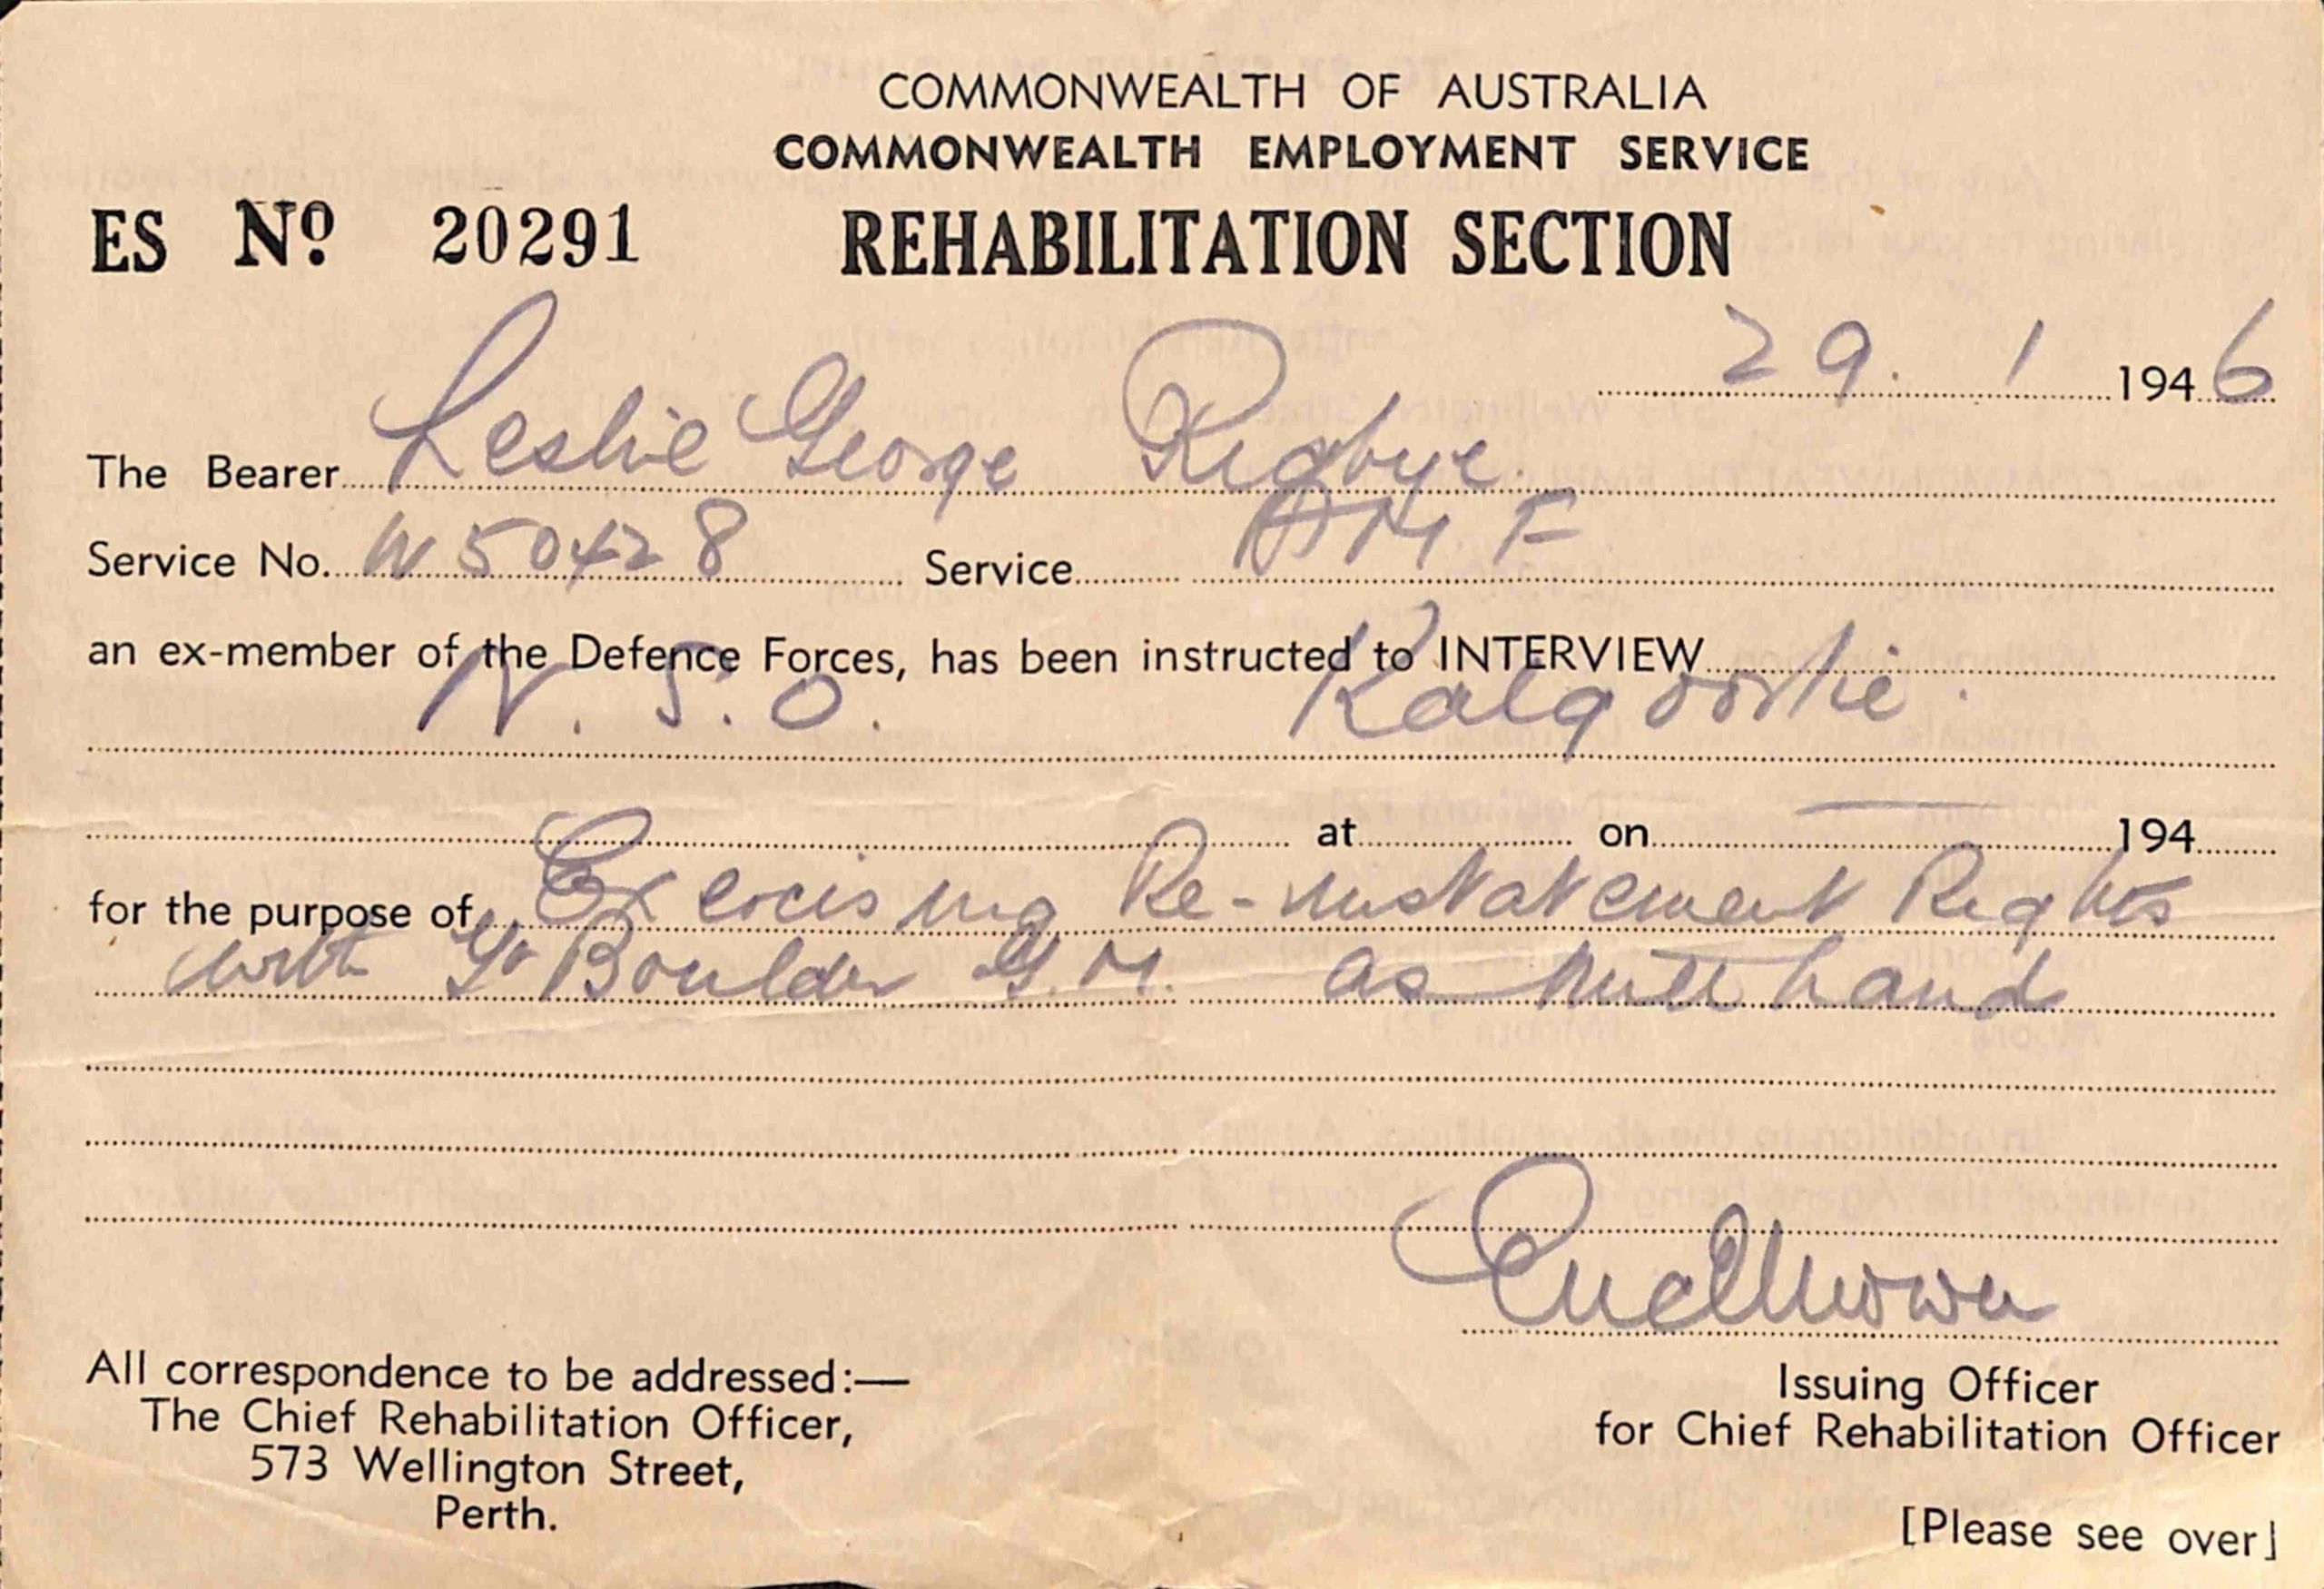 COMMONWEALTH OF AUSTRALIA
COMMONWEALTH EMPLOYMENT SERVICE
ES No 20291 REHABILITATION SECTION
29. 1 1946
The Bearer Leslie George Rigbye.
Service No. W50428 Service AMF
an ex-member of the Defence Forces, has been instructed to INTERVIEW
N. S. O. Kalgoorlie.
at on 194
for the purpose of Exercising Re-instatement Rights
with Gt Boulder G.M. as Mill hand
All correspondence to be addressed:—
The Chief Rehabilitation Officer,
573 Wellington Street,
Perth.
Issuing Officer
for Chief Rehabilitation Officer
[Please see over]